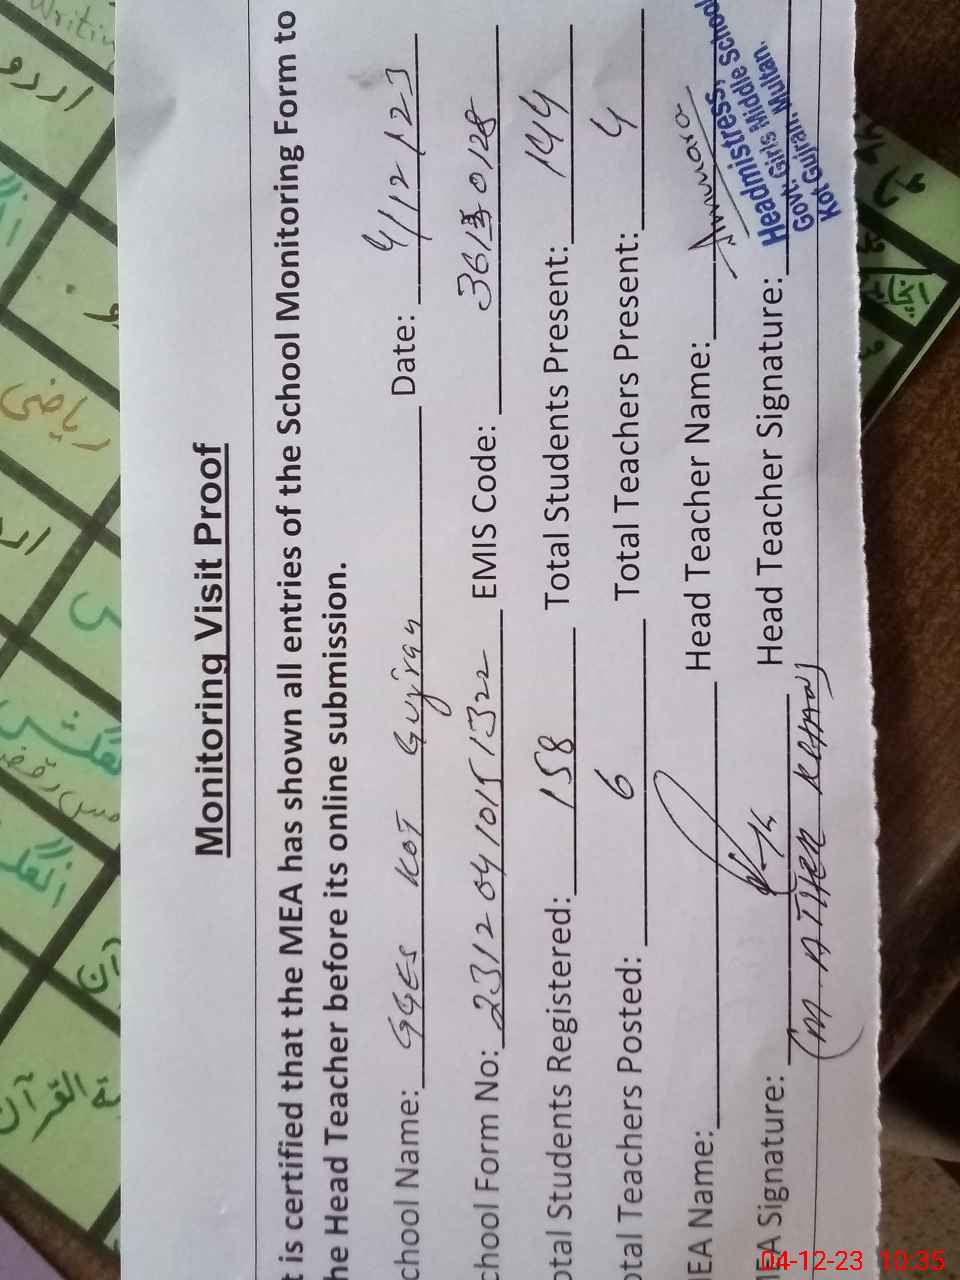 Monitoring Visit Proof
t is certified that the MEA has shown all entries of the School Monitoring Form to
he Head Teacher before its online submission.
chool Name: GGES KOT Gujran Date: 4/12/23
chool Form No: 23120410151322 EMIS Code: 36130128
otal Students Registered: 158 Total Students Present: 144
otal Teachers Posted: 6 Total Teachers Present: 4
IEA Name: Head Teacher Name: Ammara
IEA Signature: (M. ATHER KHAN) Head Teacher Signature:
Headmistress,
Govt. Girls Middle School
Kot Gujran, Multan.
Writin
اردو
ریاضی
انگلش
القرآن
04-12-23 10:35